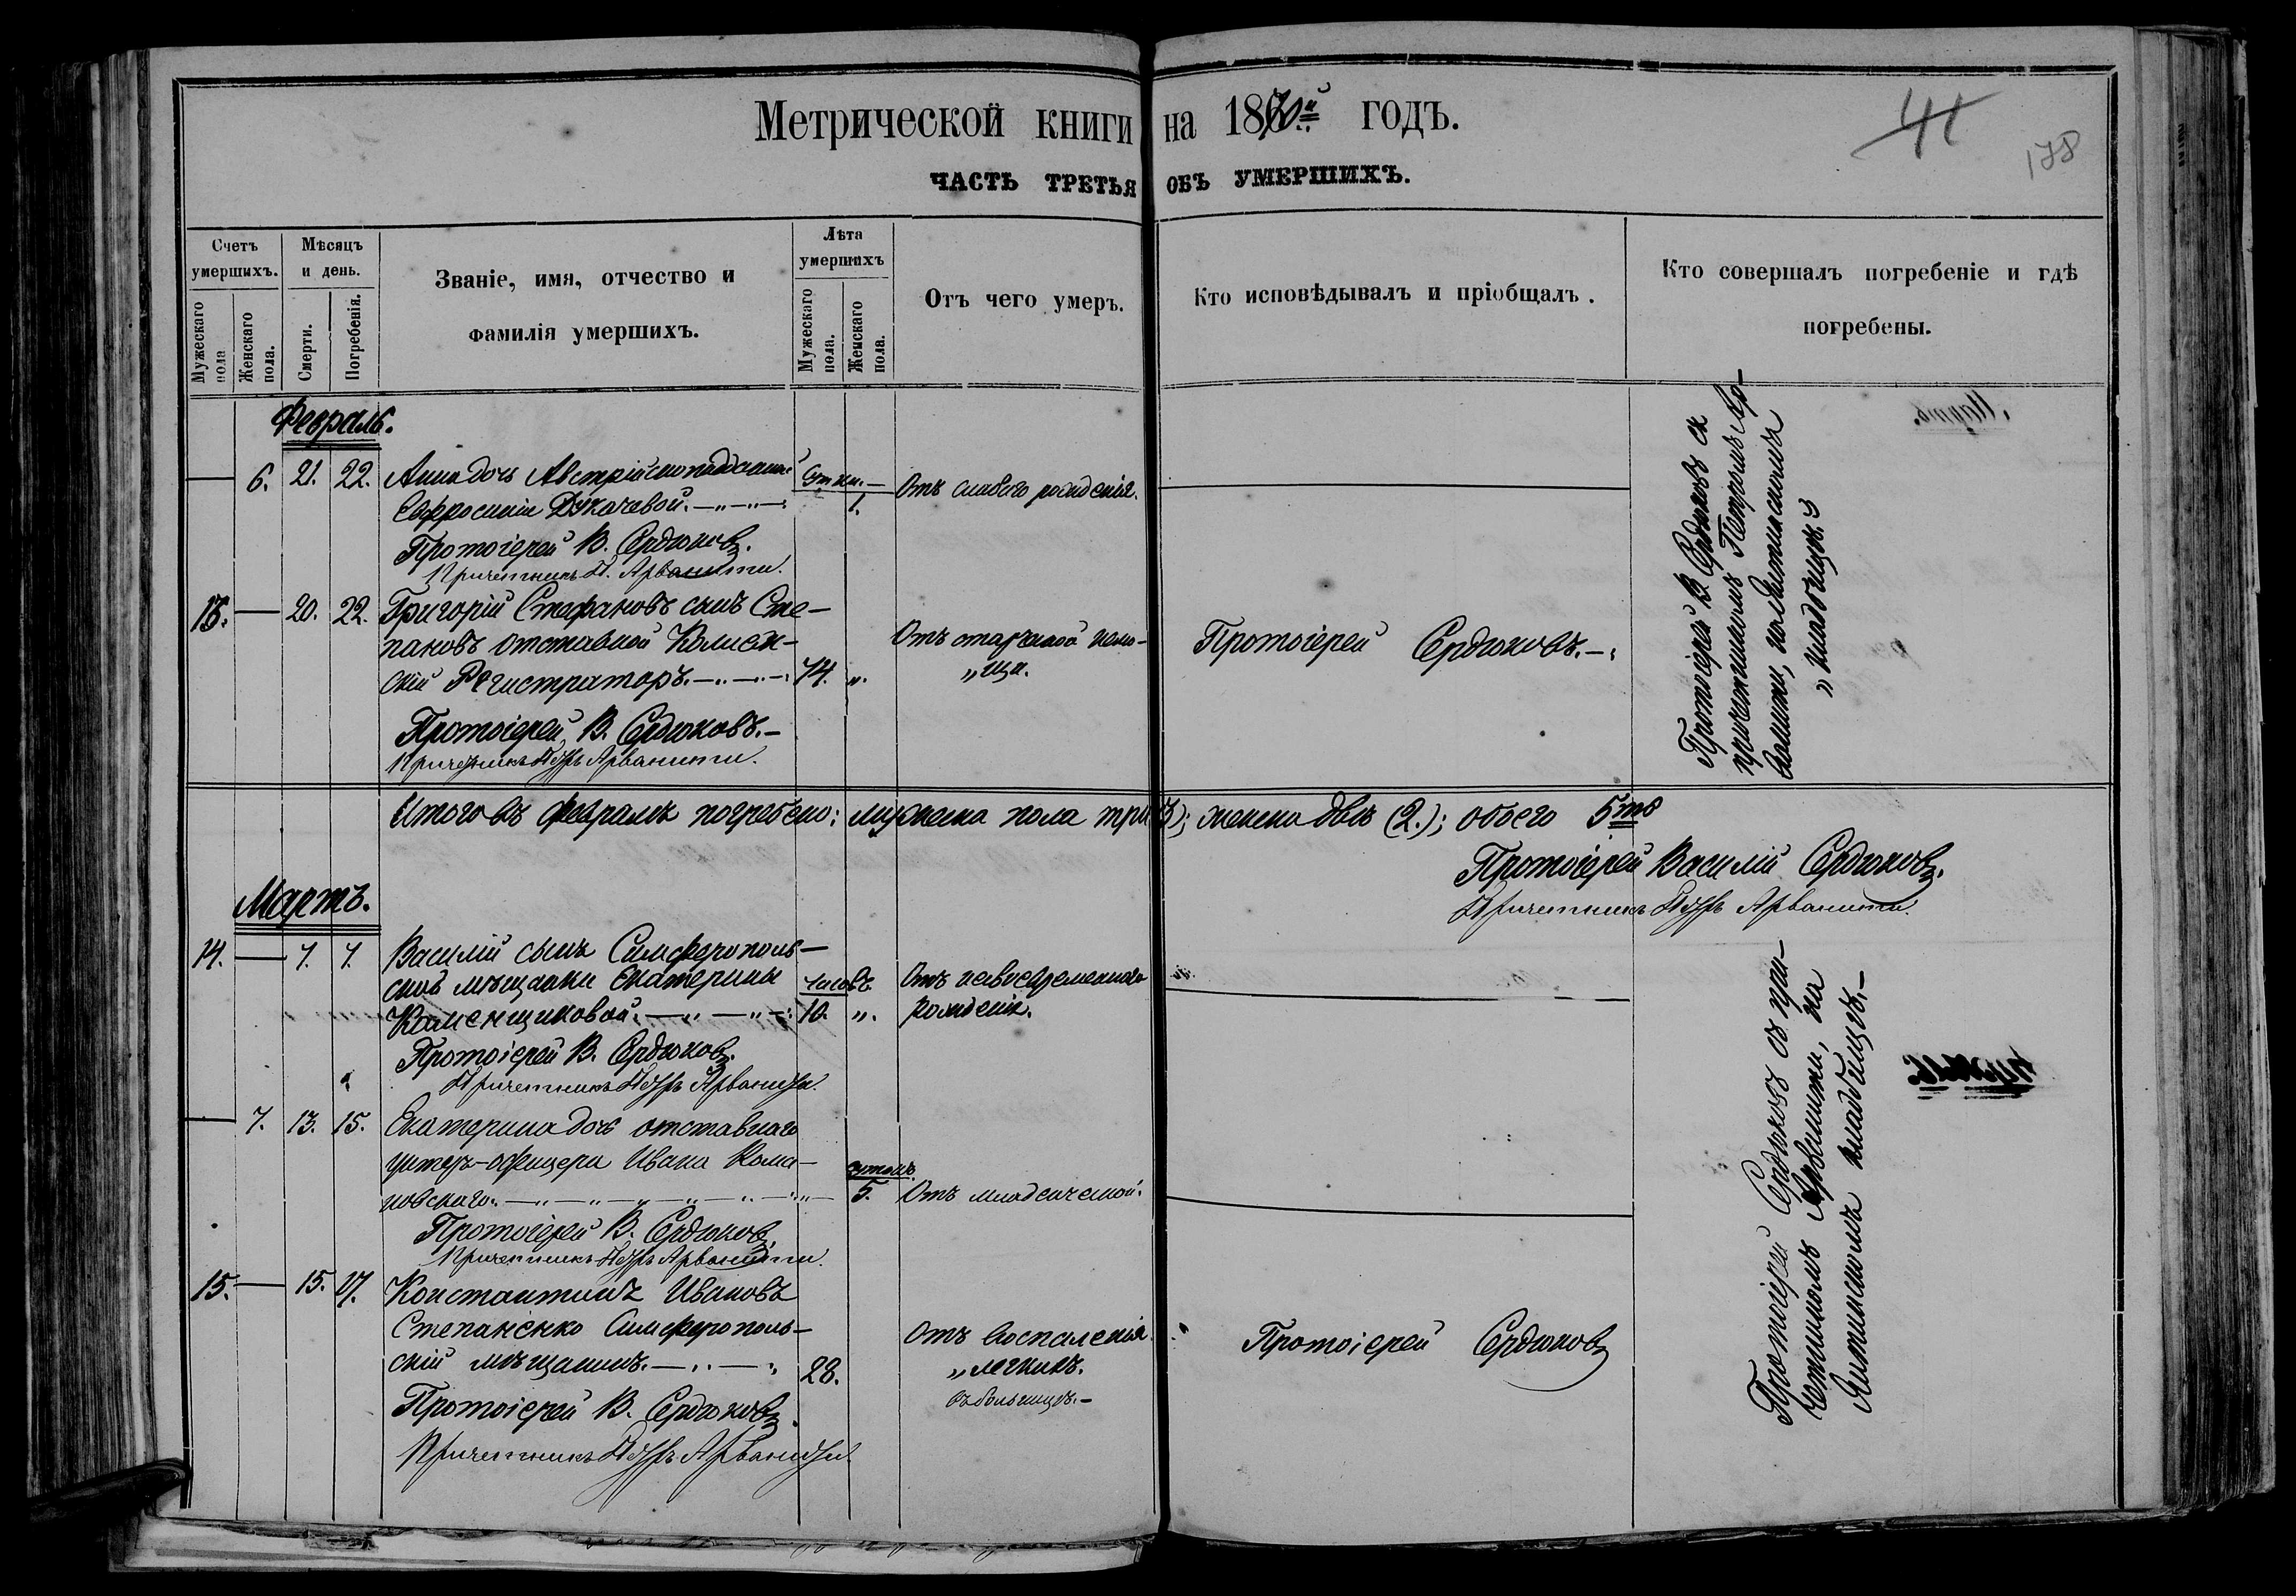 Метрической книги на 1870й годъ.
41
178
ЧАСТЬ ТРЕТЬЯ ОБЪ УМЕРШИХЪ.
Счетъ умершихъ.
Мужескаго пола
Женскаго пола.
Мѣсяцъ и день.
Смерти.
Погребенія.
Званіе, имя, отчество и
фамилія умершихъ.
Лѣта умершихъ
Мужескаго пола.
Женскаго пола.
Отъ чего умеръ.
Кто исповѣдывалъ и пріобщалъ.
Кто совершалъ погребеніе и гдѣ
погребены.
Февраль.
6. 21. 22. Анна дочь Австрійскоподданной Сутки. Отъ слабаго рожденія.
Евфросиніи Дукачевой. 1.
Протоіерей В. Сердюковъ.
Причетникъ П. Арванити.
13. 20. 22. Григорій Стефановъ сынъ Сте-
пановъ отставной Коллеж- Отъ старческой немо- Протоіерей Сердюковъ.
скій Регистраторъ. 74. „. „щи.
Протоіерей В. Сердюковъ.
Причетникъ Петръ Арванити.
Протоіерей В. Сердюковъ съ
причетникомъ Петромъ Ар-
ванити, на
„кладбищѣ.
Итого въ февралѣ погребено: мужеска пола три (3); женска двѣ (2.); обоего 5ть
Протоіерей Василій Сердюковъ.
Причетникъ Петръ Арванити.
Мартъ.
14. 7. 7. Василій сынъ Симферополь-
ской мѣщанки Екатерины часовъ. Отъ невоевременнаго
Каменщиковой. 10. „. рожденія.
Протоіерей В. Сердюковъ.
Причетникъ Петръ Арванити.
7. 13. 15. Екатерина дочь отставнаго
унтеръ-офицера Ивана Кома- сутокъ
новскаго. 5. Отъ младенческой.
Протоіерей В. Сердюковъ.
Причетникъ Петръ Арванити.
15. 15. 17. Константинъ Ивановъ
Степаненко Симферополь- Отъ воспаленія Протоіерей Сердюковъ
скій мѣщанинъ. 28. „легкихъ.
въ больницѣ.
Протоіерей В. Сердюковъ.
Причетникъ Петръ Арванити.
Протоіерей Сердюковъ съ при-
четникомъ Арванити, на
кладбищѣ.